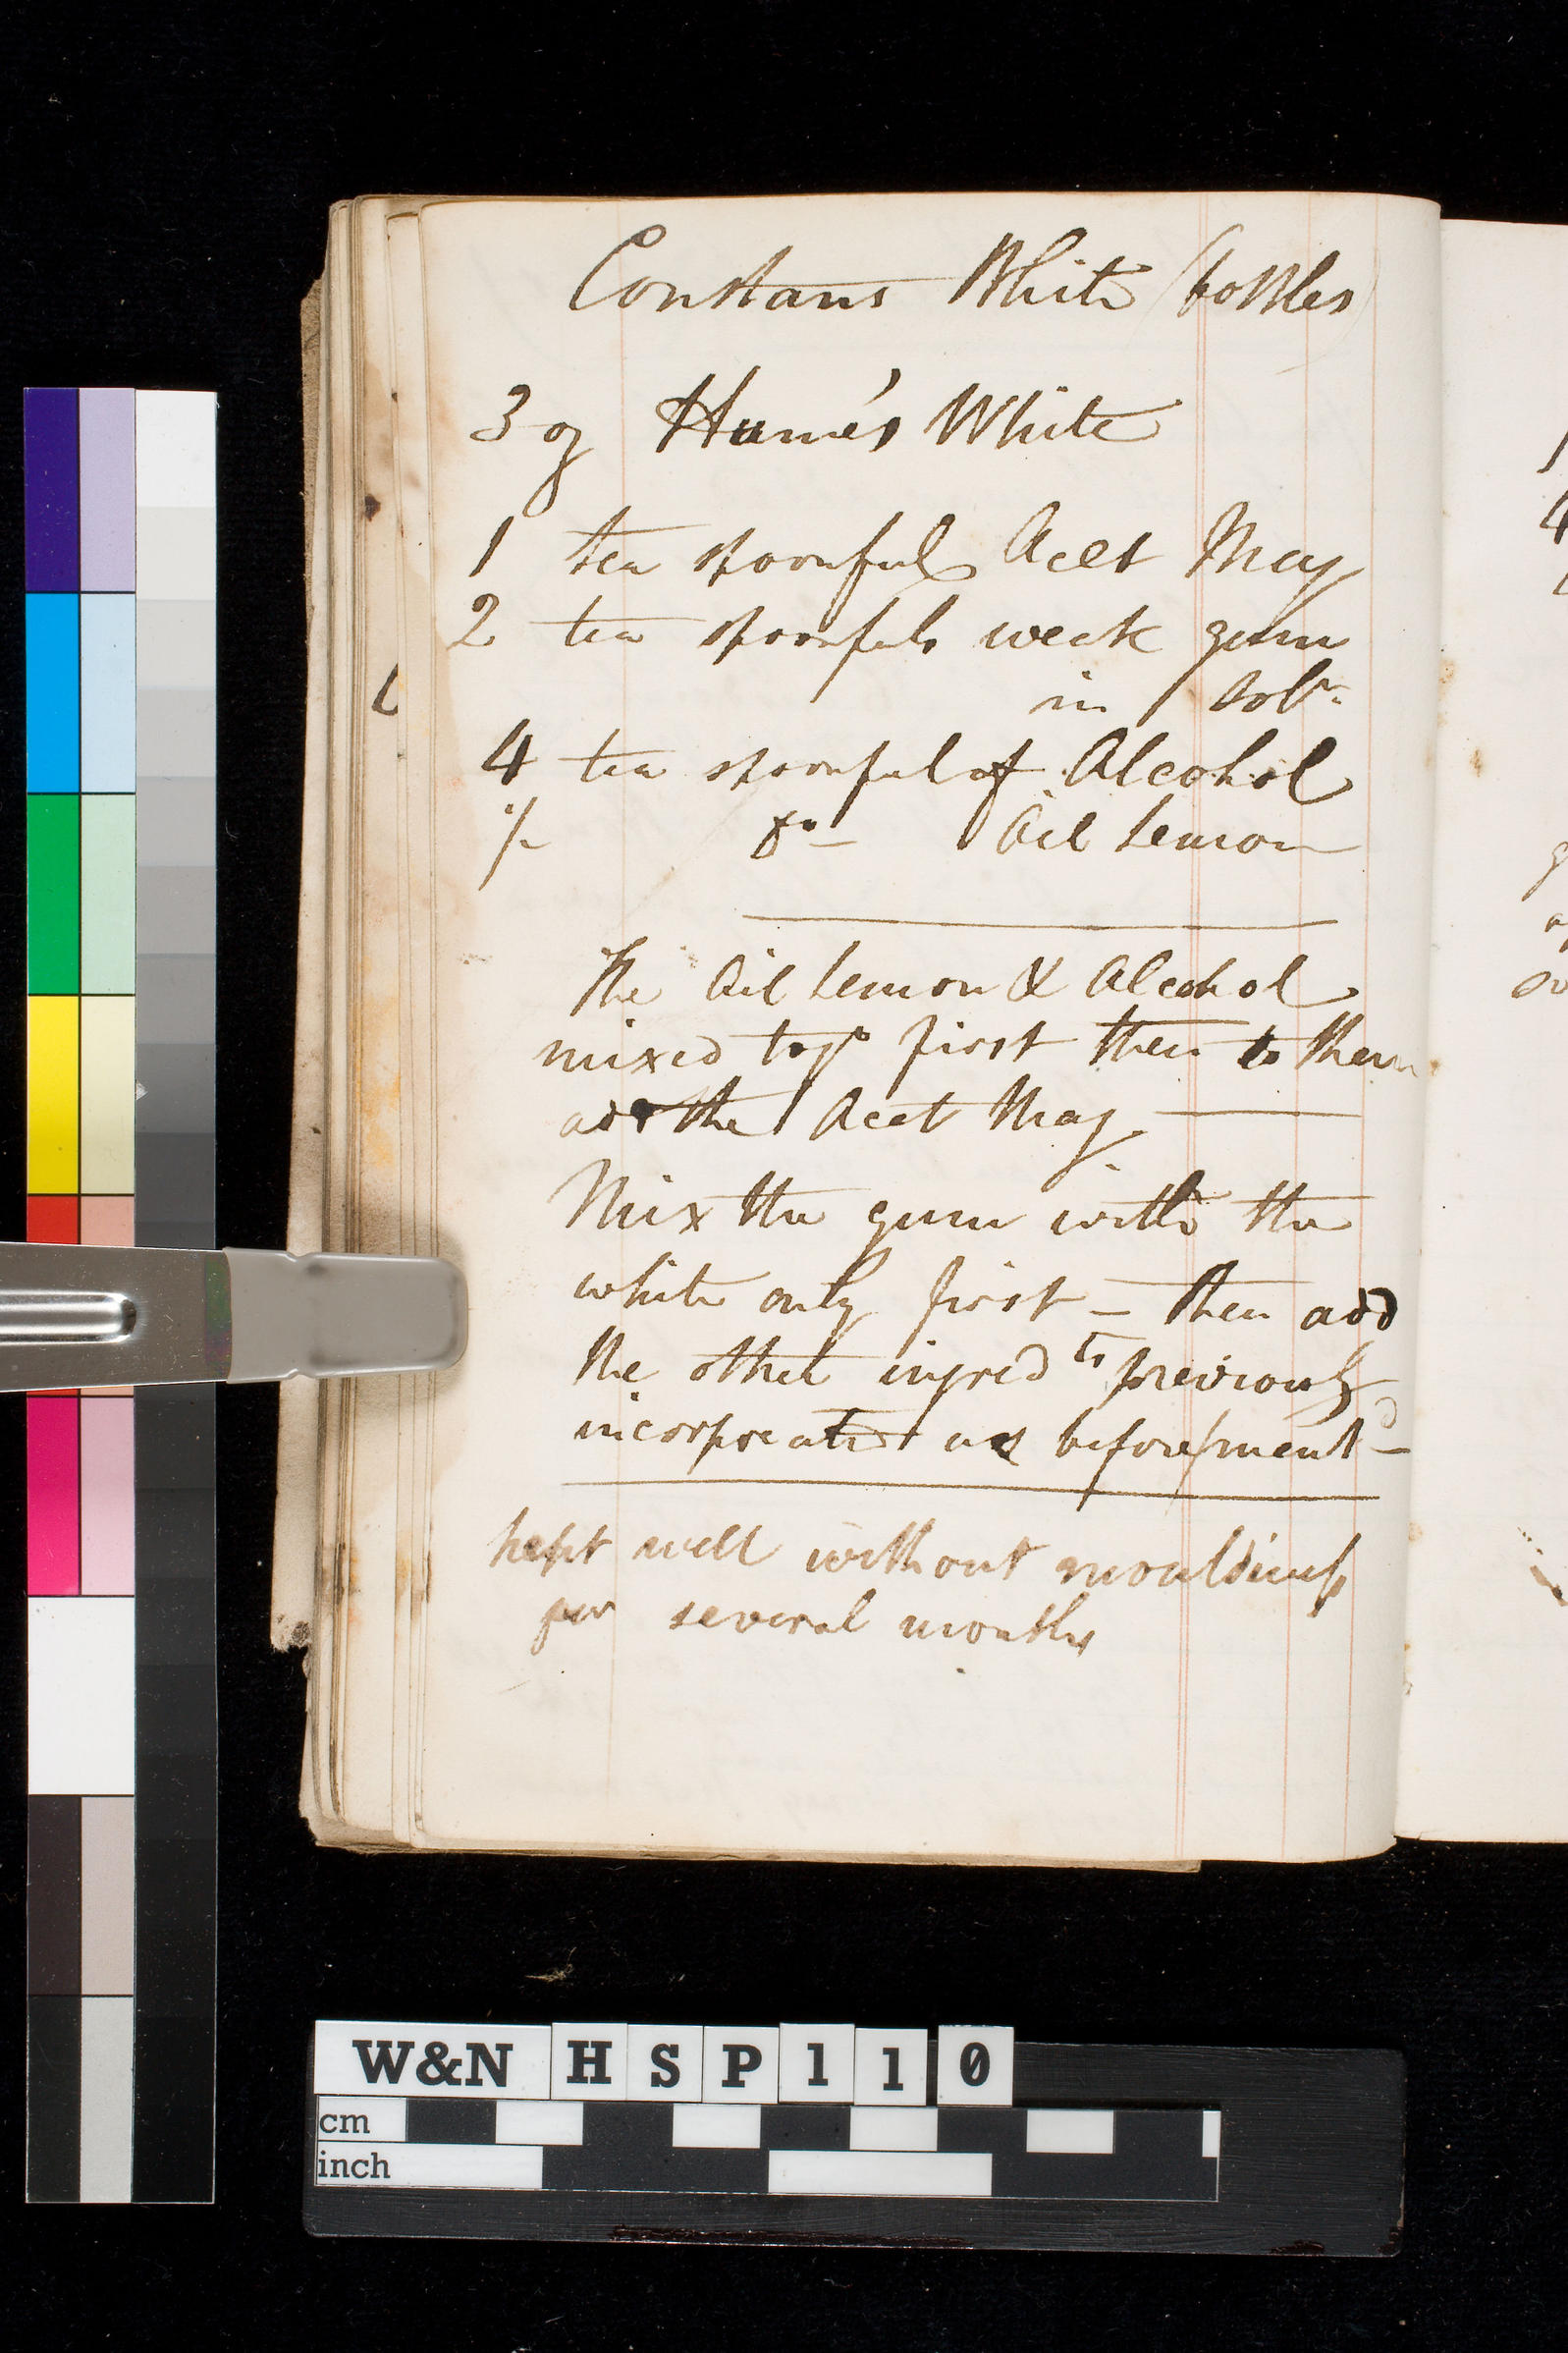 Constans White (bottles)
3 oz Hume's White
1 tea spoonful Acet Mag
2 tea spoonfuls weak gum
in soln
4 tea spoonful of Alcohol
1/2 Do Oil Lemon
The Oil Lemon & Alcohol
mixed togr first then to them
add the Acet Mag
Mix the gum with the
white only first — then add
the other ingredts previously
incorporated as beforementd
kept well without mouldiness
for several months
W&N HSP110
cm
inch